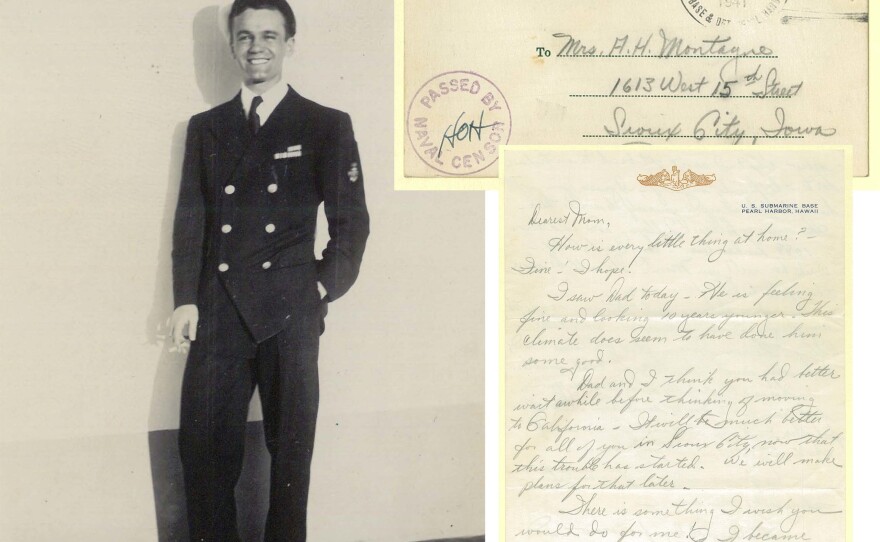 1941
BASE & DET
To Mrs. A. H. Montagne
1613 West 15th Street
Sioux City, Iowa
PASSED BY
NAVAL CENSOR
HOH
U. S. SUBMARINE BASE
PEARL HARBOR, HAWAII
Dearest Mom,
How is every little thing at home? -
Fine -! I hope!
I saw Dad today - He is feeling
fine and looking 10 years younger. This
climate does seem to have done him
some good.
Dad and I think you had better
wait awhile before thinking of moving
to California - It will be much better
for all of you in Sioux City, now that
this trouble has started. We will make
plans for that later -
There is something I wish you
would do for me! I became